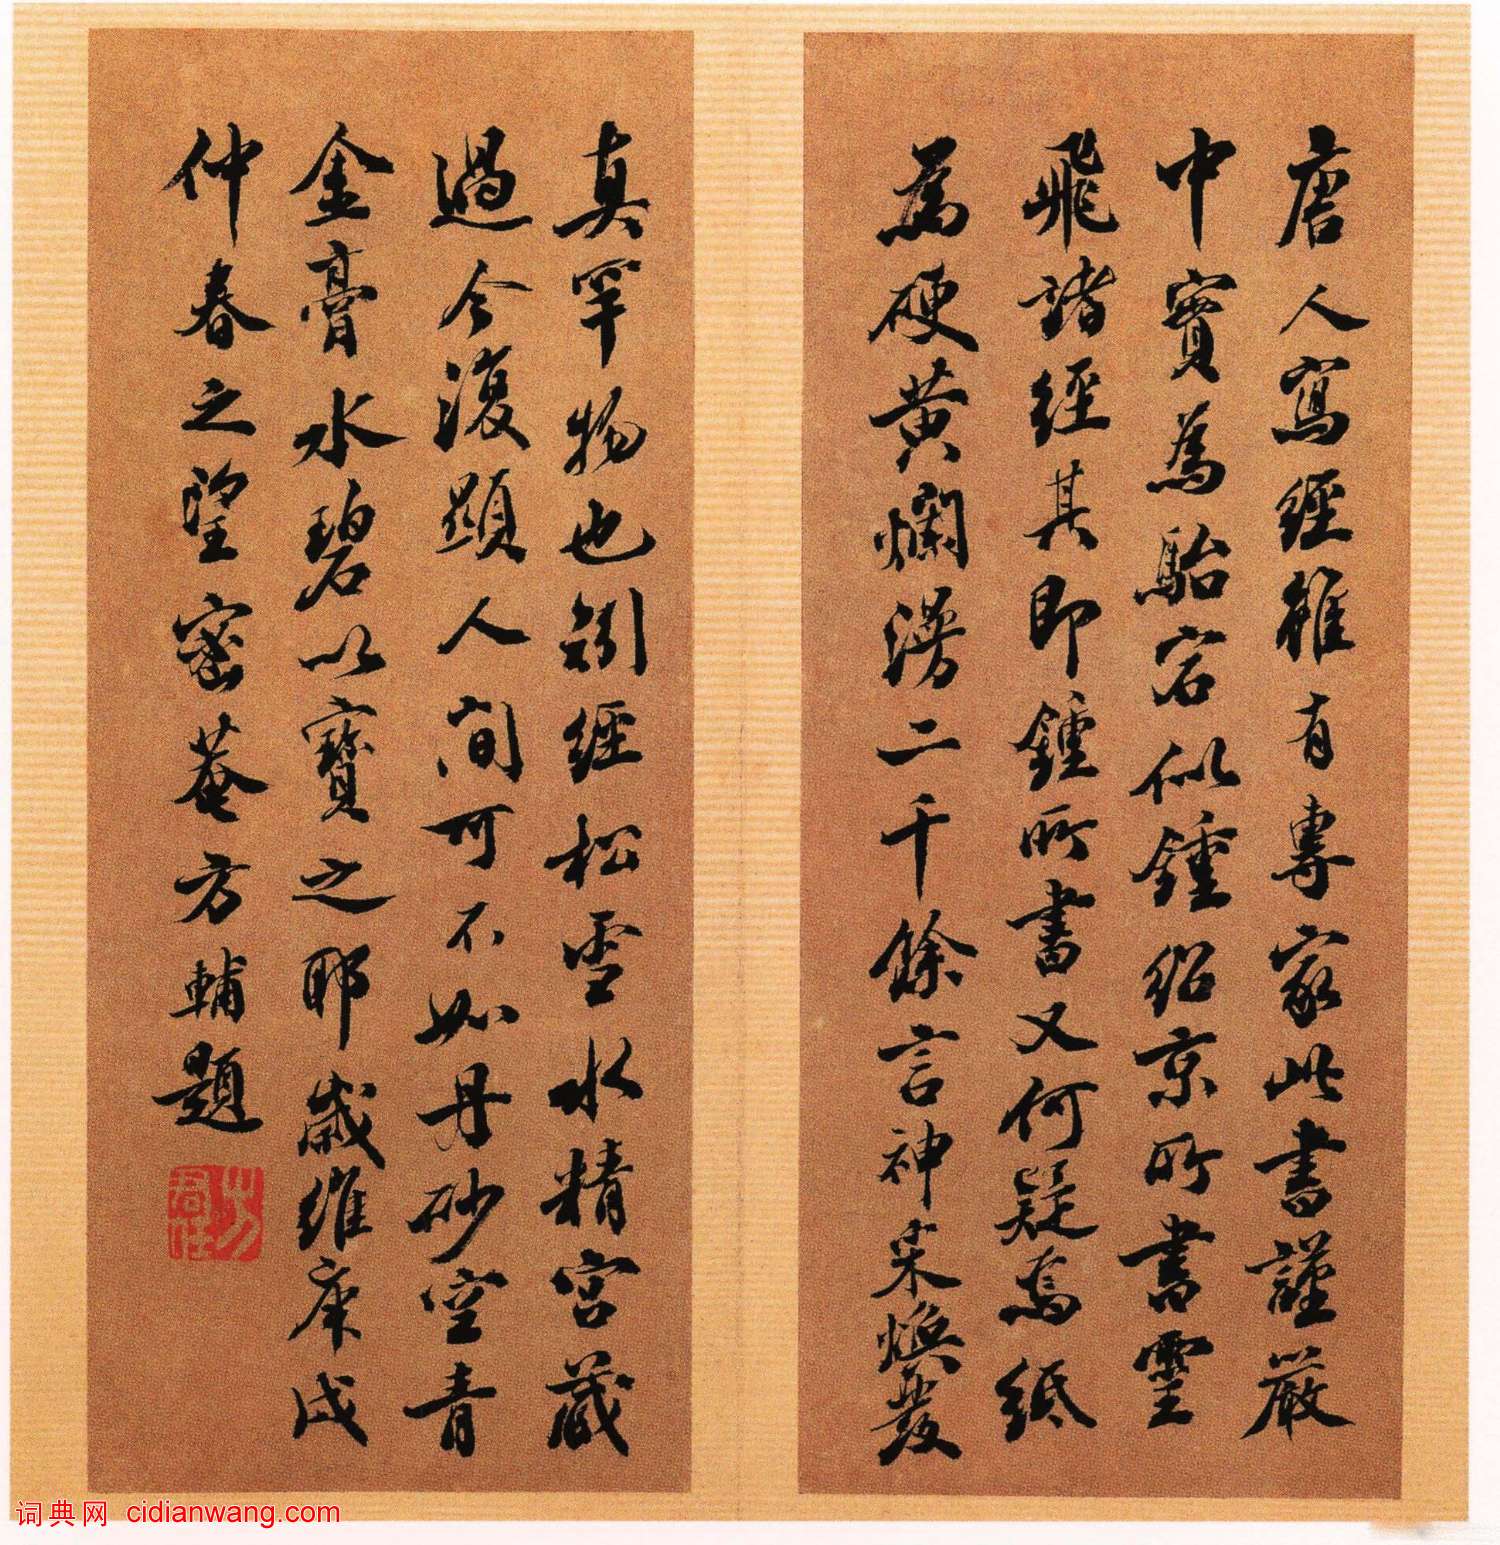 唐人寫經雖有專家此書謹嚴
中實為駘宕似鍾紹京所書靈
飛諸經其即鍾所書又何疑焉紙
為硬黃爛漫二千餘言神采煥發
真罕物也矧經松雪水精宮藏
過今復顯人間可不如丹砂空青
金膏水碧以寶之耶歲維庚戌
仲春之望密菴方輔題
词典网 cidianwang.com